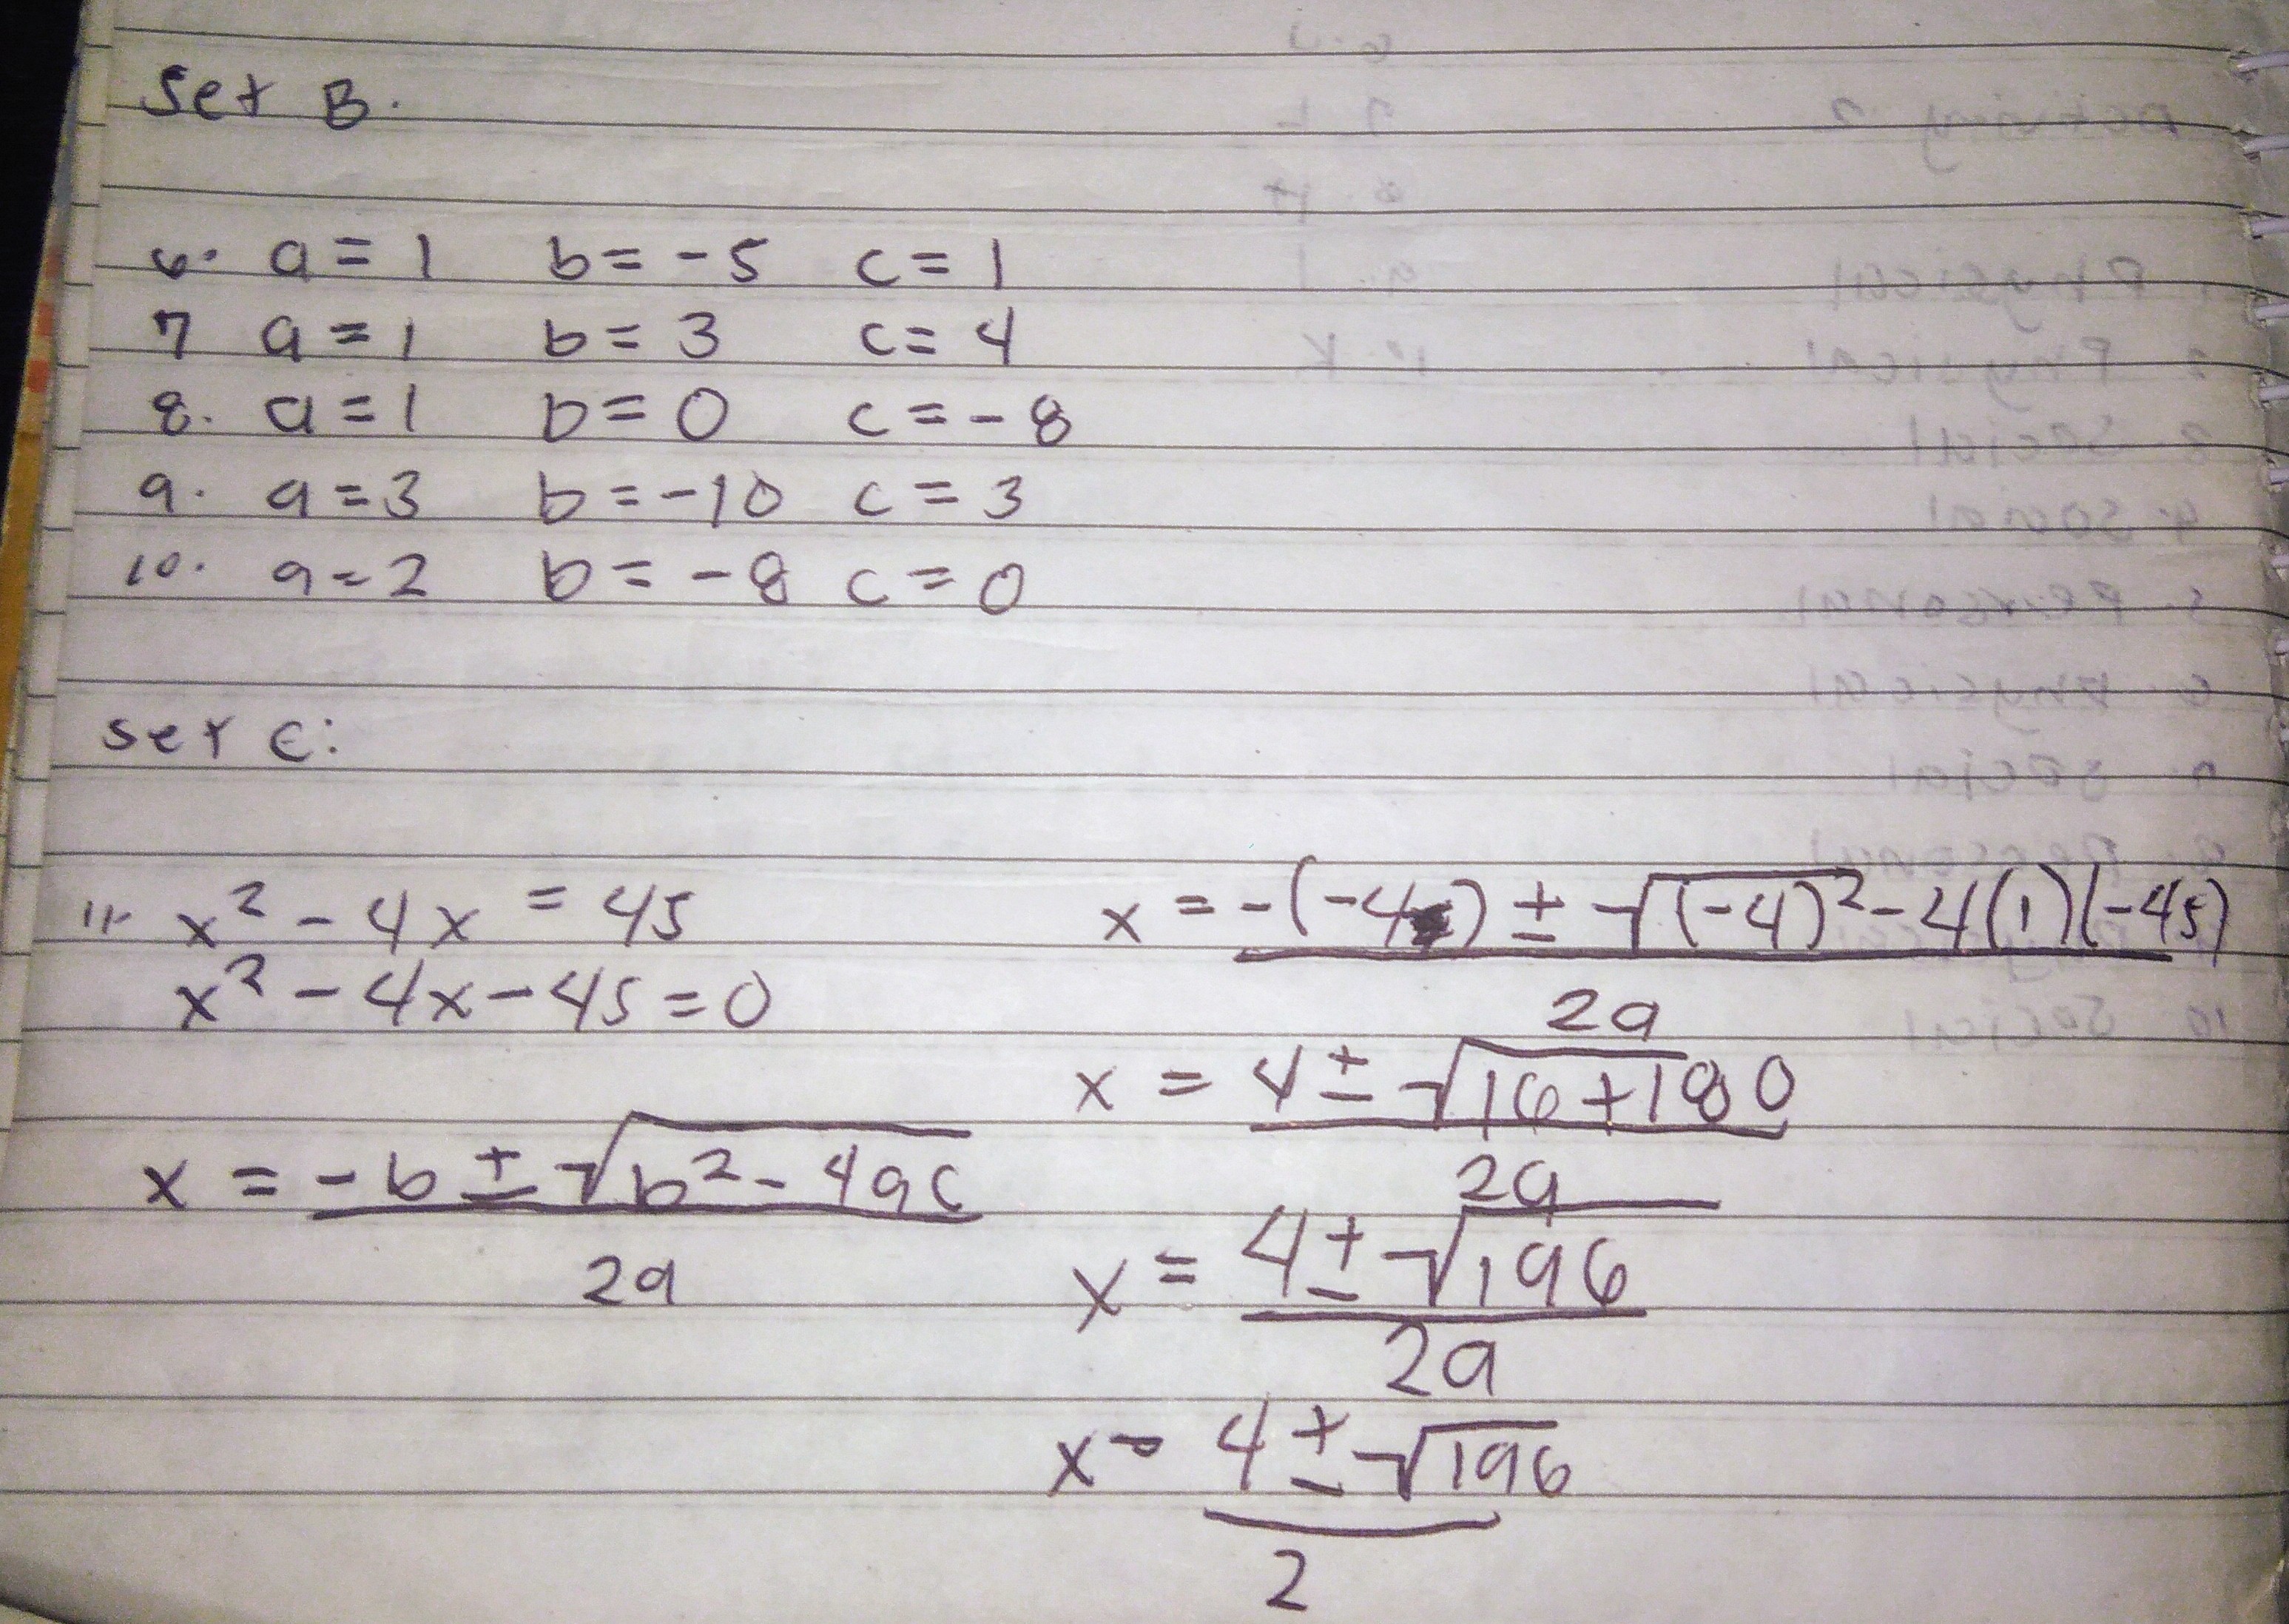 Set B.
6. a = 1 b = -5 c = 1
7 a = 1 b = 3 c = 4
8. a = 1 b = 0 c = -8
9. a = 3 b = -10 c = 3
10. a = 2 b = -8 c = 0
Set C:
11. x² - 4x = 45
x² - 4x - 45 = 0
x = -b ± √b² - 4ac
2a
x = -(-4) ± √(-4)² - 4(1)(-45)
2a
x = 4 ± √16 + 180
2a
x = 4 ± √196
2a
x = 4 ± √196
2